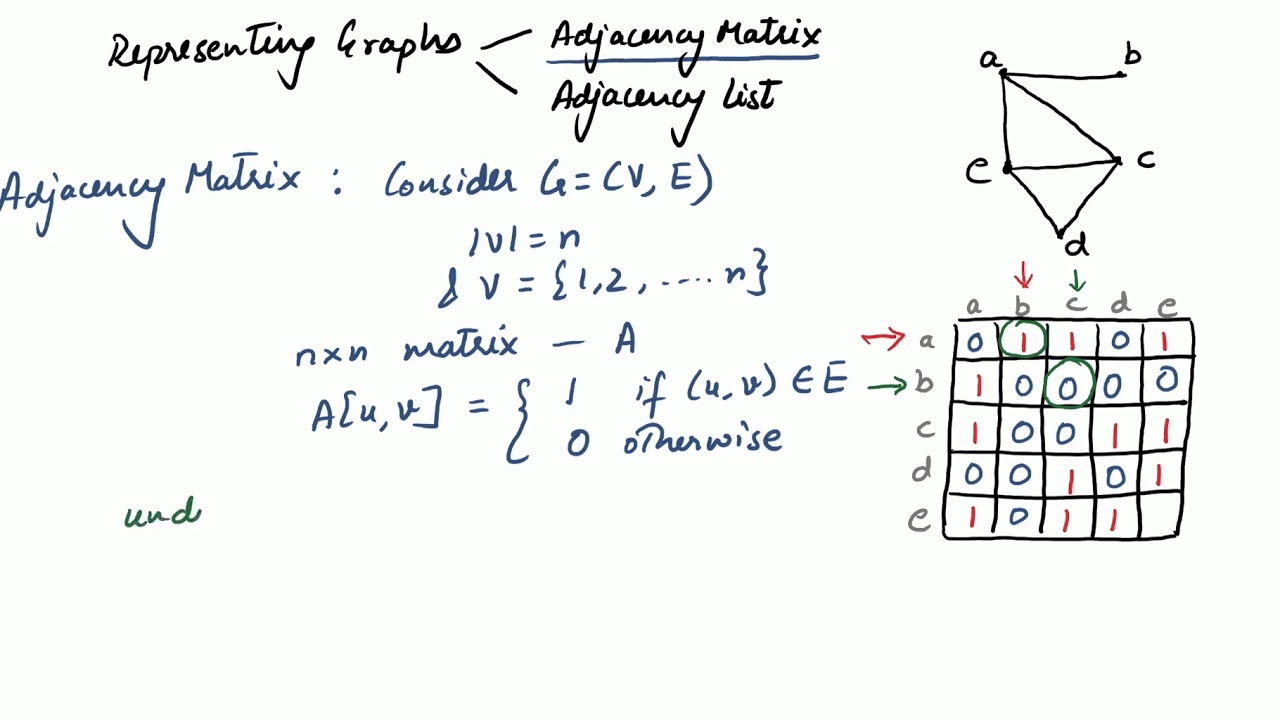 Representing Graphs
Adjacency Matrix
Adjacency List
Adjacency Matrix : Consider G = (V, E)
|V| = n
& V = {1, 2, ..... n}
n×n matrix — A
A[u, v] = { 1 if (u, v) ∈ E
0 otherwise
und
a b
e c
d
a b c d e
a 0 1 1 0 1
b 1 0 0 0 0
c 1 0 0 1 1
d 0 0 1 0 1
e 1 0 1 1